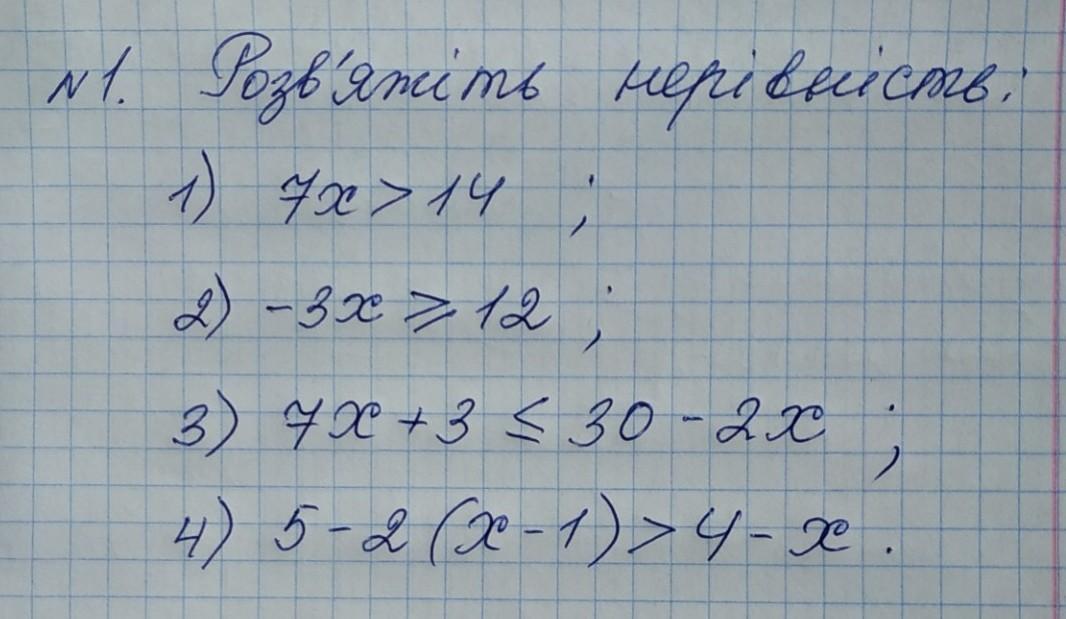 №1. Розв'яжіть нерівність:
1) 7x > 14 ;
2) -3x ⩾ 12 ;
3) 7x + 3 ≤ 30 - 2x ;
4) 5 - 2(x - 1) > 4 - x .